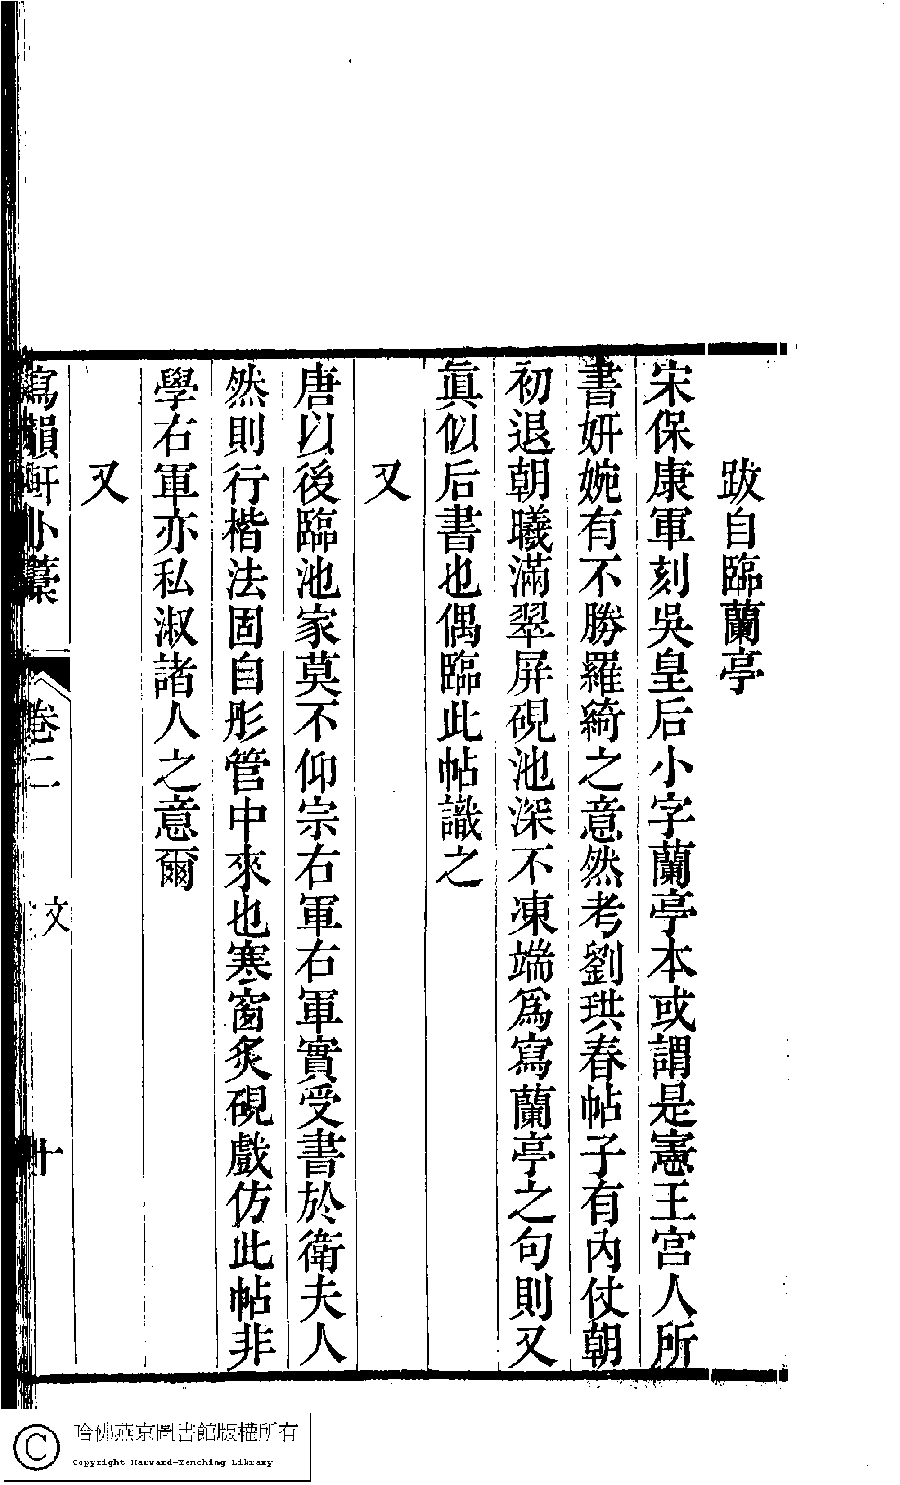 跋自臨蘭亭
宋保康軍刻吳皇后小字蘭亭本或謂是憲王宮人所
書妍婉有不勝羅綺之意然考劉珙春帖子有內仗朝
初退朝曦滿翠屏硯池深不凍端爲寫蘭亭之句則又
眞似后書也偶臨此帖識之
又
唐以後臨池家莫不仰宗右軍右軍實受書於衛夫人
然則行楷法固自彤管中來也寒窗炙硯戲仿此帖非
學右軍亦私淑諸人之意爾
又
寫韻軒小藁 卷二 文 十
哈佛燕京圖書館版權所有
Copyright Harvard-Yenching Library